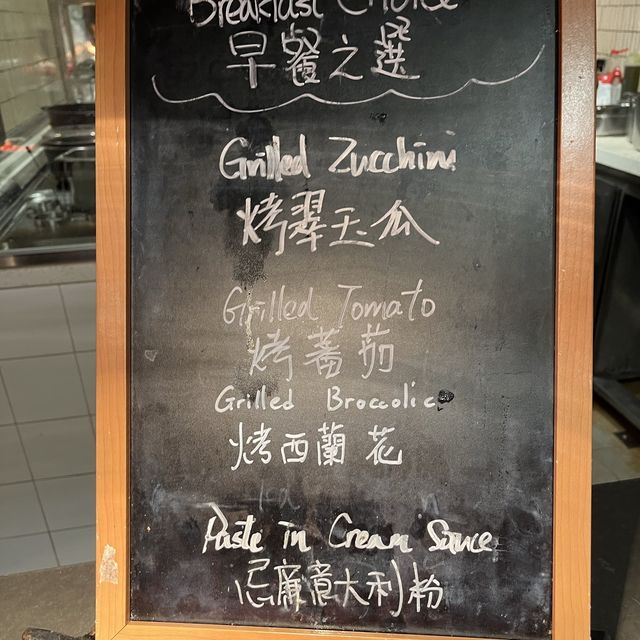 Breakfast Choice
早餐之選
Grilled Zucchini
烤翠玉瓜
Grilled Tomato
烤蕃茄
Grilled Broccolic
烤西蘭花
Paste in Cream Sauce
忌廉意大利粉